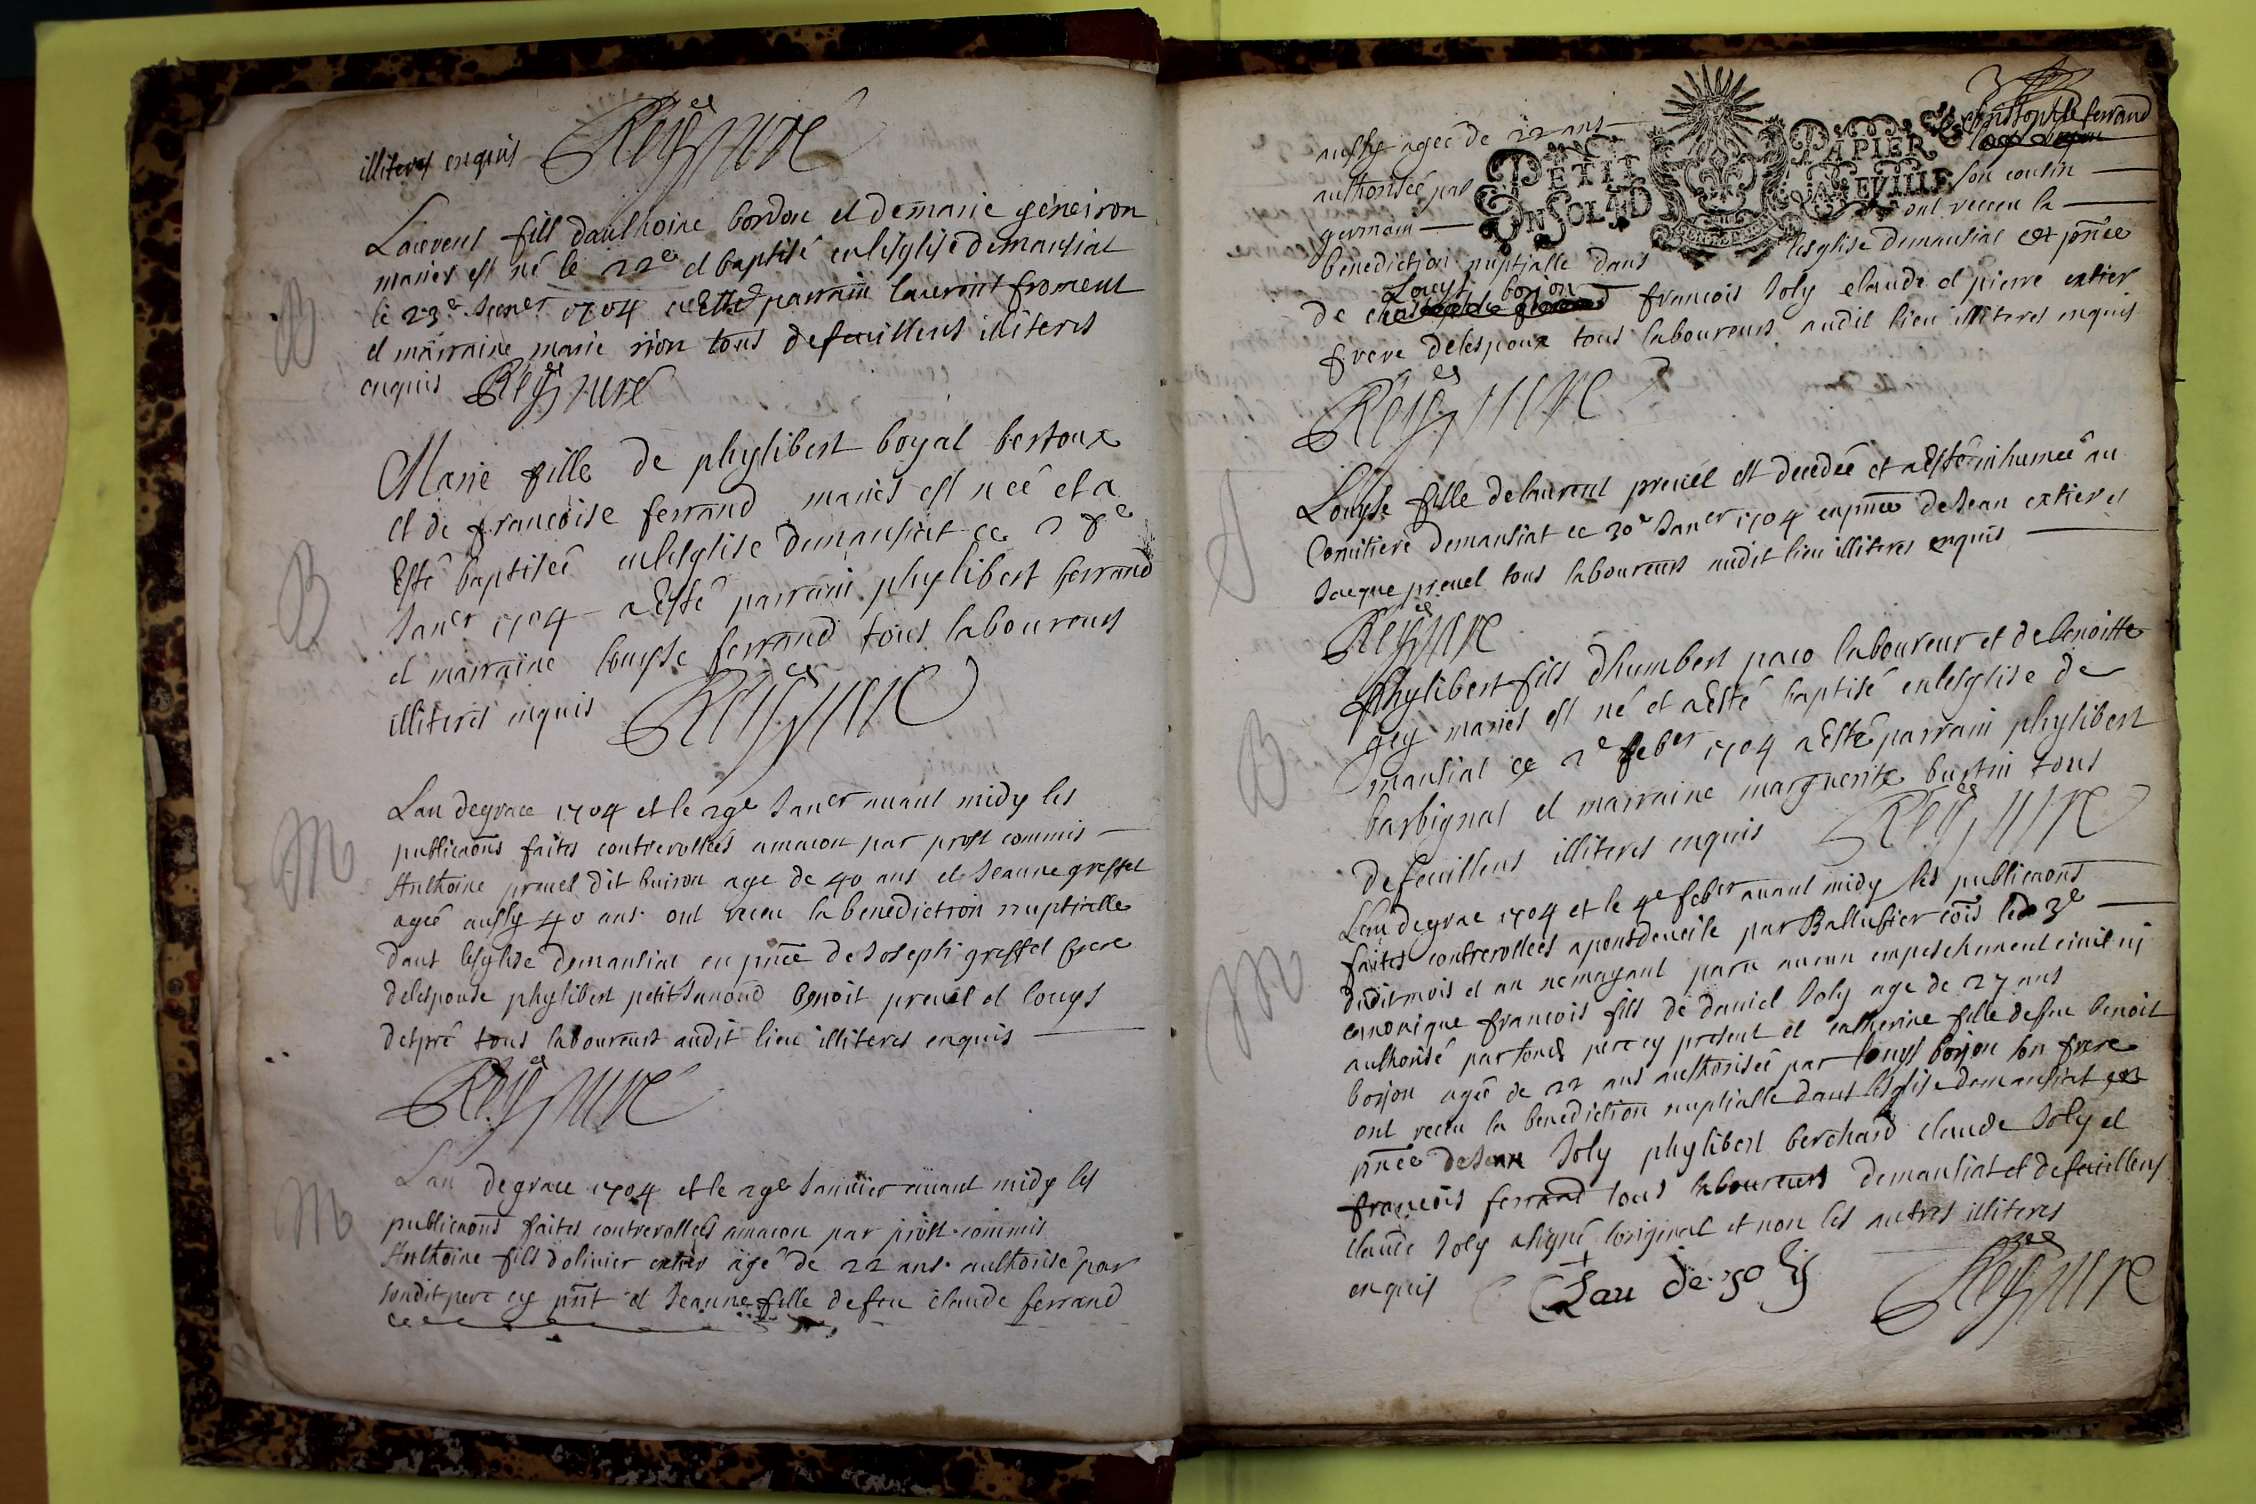 illiteres enquis Rey curé
B
Laurens fils danthoine bordon et de marie géneiron
maries est né le 22e et baptisé en lesglise demansiat
le 23e Janer 1704 a Esté parrain laurent froment
et marraine marie rion tous defeuillens illiteres
enquis Rey curé
B
Marie fille de phylibert boyat bertoux
et de francoise ferrand maries est neé et a
Esté baptiseé en lesglise demansiat ce 28e
Janer 1704 a Esté parrain phylibert ferrand
et marraine louyse ferrand tous laboureurs
illiteres enquis Rey curé
M
Lan degrace 1704 et le 29e Janer avant midy les
publicaons faites controrollées amacon par prost commis
Anthoine preuel dit buiron age de 40 ans et Jeanne greffet
ageé aussy 40 ans ont receu la benediction nuptialle
dans lesglise demansiat en pnce de Joseph greffet frere
delespouse phylibert petit Janond benoit preuel et louys
despré tous laboureurs audit lieu illiteres enquis
Rey curé
M
Lan degrace 1704 et le 29e Janvier avant midy les
publicaons faites controrollées amacon par prost commis
Anthoine fils dolivier extier agé de 22 ans authorisé par
sondit pere cy pnt et Jeanne fille defeu claude ferrand
3
aussy ageé de 22 ans
PETIT PAPIER
UN SOL 4 D LA FEVILLE
authorisée par christophle ferrand
son cousin
germain ont receu la
benediction nuptialle dans lesglise demansiat et pnce
louys borjon
de francois Joly claude et pierre extier
frere delespoux tous laboureurs audit lieu illiteres enquis
Rey curé
S
Louyse fille delaurent preuel est decedeé et a Esté inhumeé au
Cemitiere demansiat ce 30e Janer 1704 en pnce de Jean extier et
Jacque preuel tous laboureurs audit lieu illiteres enquis
Rey curé
B
Phylibert fils dhumbert paco laboureur et de benoitte
gey maries est né et a Esté baptisé en lesglise de
mansiat ce 2e feber 1704 a Esté parrain phylibert
barbignat et marraine marguerite burtin tous
defeuillens illiteres enquis Rey curé
M
Lan degrace 1704 et le 4e feber avant midy les publicaons
faites controrollées apontdeveile par Ballufier cois le 3e
dudit mois et an nemayant paru aucun empeschement civil ni
canonique francois fils de daniel Joly age de 27 ans
authorisé par sond pere cy present et catherine fille defeu benoit
borjon ageé de 22 ans authoriseé par louys borjon son frere
ont receu la benediction nuptialle dans lesglise demansiat en
pnce de Jean Joly phylibert berchard claude Joly et
francois ferrand tous laboureurs demansiat et defeuillens
claude Joly a signé loriginal et non les autres illiteres
enquis Rey curé